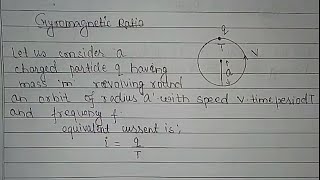 Gyromagnetic Ratio
Let us consider a
charged particle q having
mass 'm' revolving round
an orbit of radius 'a' with speed v. time period T
and frequency f.
equivalent current is:
i = q/T
q
T
v
a